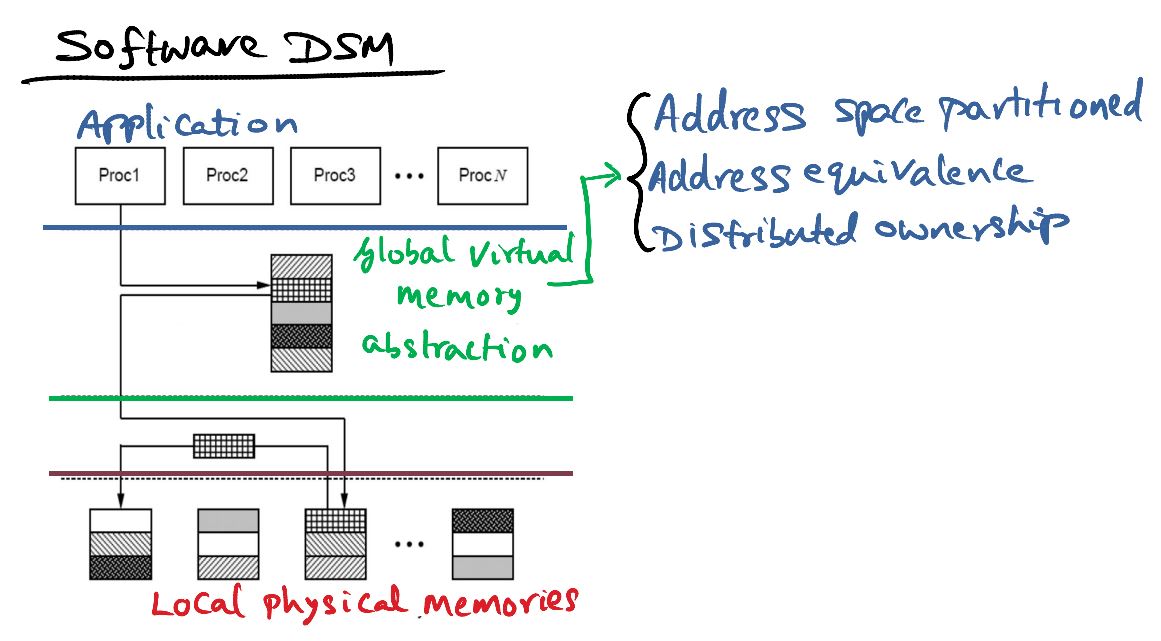 Software DSM
Application
Proc1 Proc2 Proc3 ... Proc N
Global Virtual
memory
abstraction
Address space partitioned
Address equivalence
Distributed ownership
Local physical memories